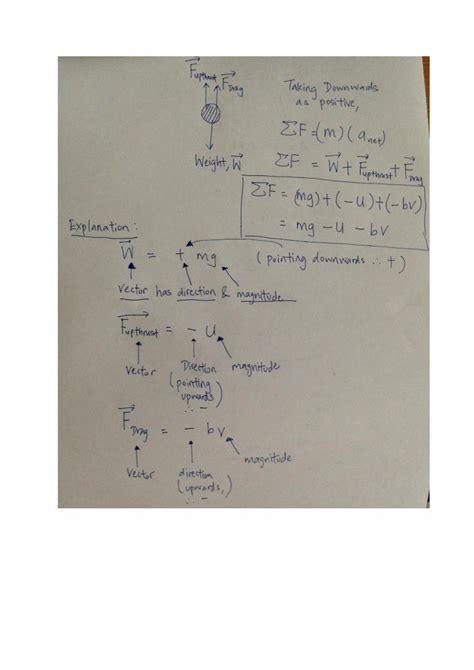 F⃗upthrust F⃗Drag
Weight, W⃗
Taking Downwards
as positive,
ΣF = (m)(a net)
ΣF = W⃗ + F⃗upthrust + F⃗Drag
ΣF = (mg)+(-U)+(-bv)
= mg - U - bv
Explanation :
W⃗ = + mg (pointing downwards ∴ +)
vector has direction & magnitude
F⃗upthrust = - U
vector Direction magnitude
(pointing
upwards)
∴ -
F⃗Drag = - bv
vector direction magnitude
(upwards,)
∴ -